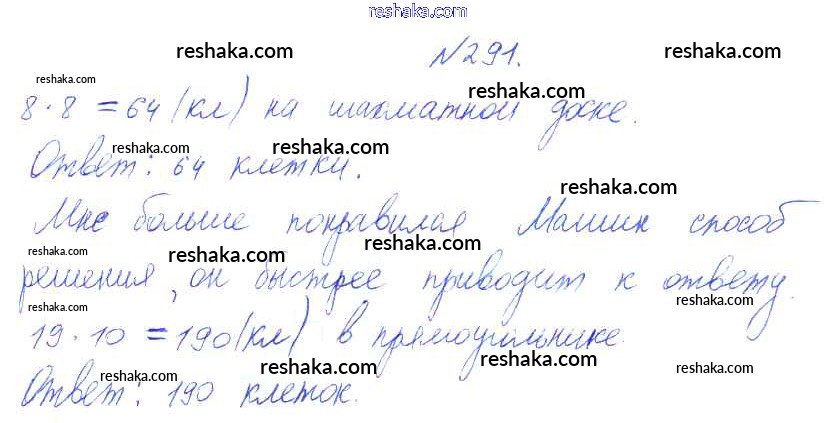 reshaka.com
reshaka.com №291. reshaka.com
reshaka.com reshaka.com
8·8 = 64 (кл) на шахматной доске.
reshaka.com reshaka.com
Ответ: 64 клетки.
reshaka.com
Мне больше понравился Машин способ
reshaka.com reshaka.com reshaka.com
решения, он быстрее приводит к ответу.
reshaka.com reshaka.com
19·10 = 190 (кл) в прямоугольнике.
reshaka.com reshaka.com
Ответ: 190 клеток.